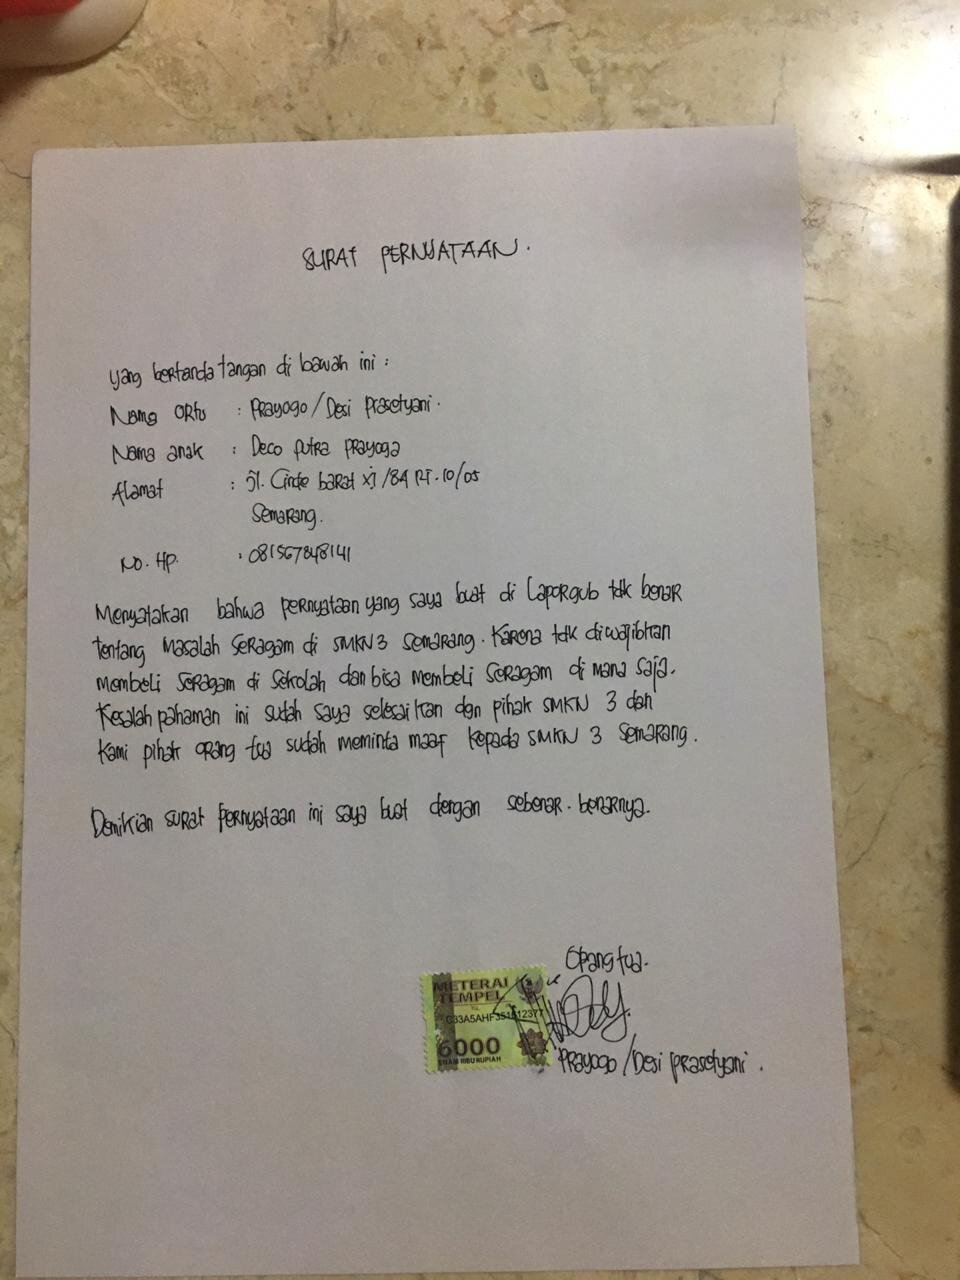 SURAT PERNYATAAN.
yang bertanda tangan di bawah ini :
Nama ORtu : Prayogo/Desi Prasetyani.
Nama anak : Deco putra prayoga
Alamat : Jl. Cinde barat xi /8A RT. 10/05
Semarang.
No. HP. : 081567848141
Menyatakan bahwa pernyataan yang saya buat di Laporgub tdk benar
tentang Masalah Seragam di SMKN 3 Semarang. Karena tdk diwajibkan
membeli Seragam di Sekolah dan bisa membeli Seragam di mana saja.
Kesalah pahaman ini sudah saya selesaikan dgn pihak SMKN 3 dan
Kami pihak orang tua sudah meminta maaf kepada SMKN 3 Semarang.
Demikian surat pernyataan ini saya buat dengan sebenar. benarnya.
Orang tua.
METERAI
TEMPEL
6000
ENAM RIBU RUPIAH
Prayogo/Desi prasetyani.